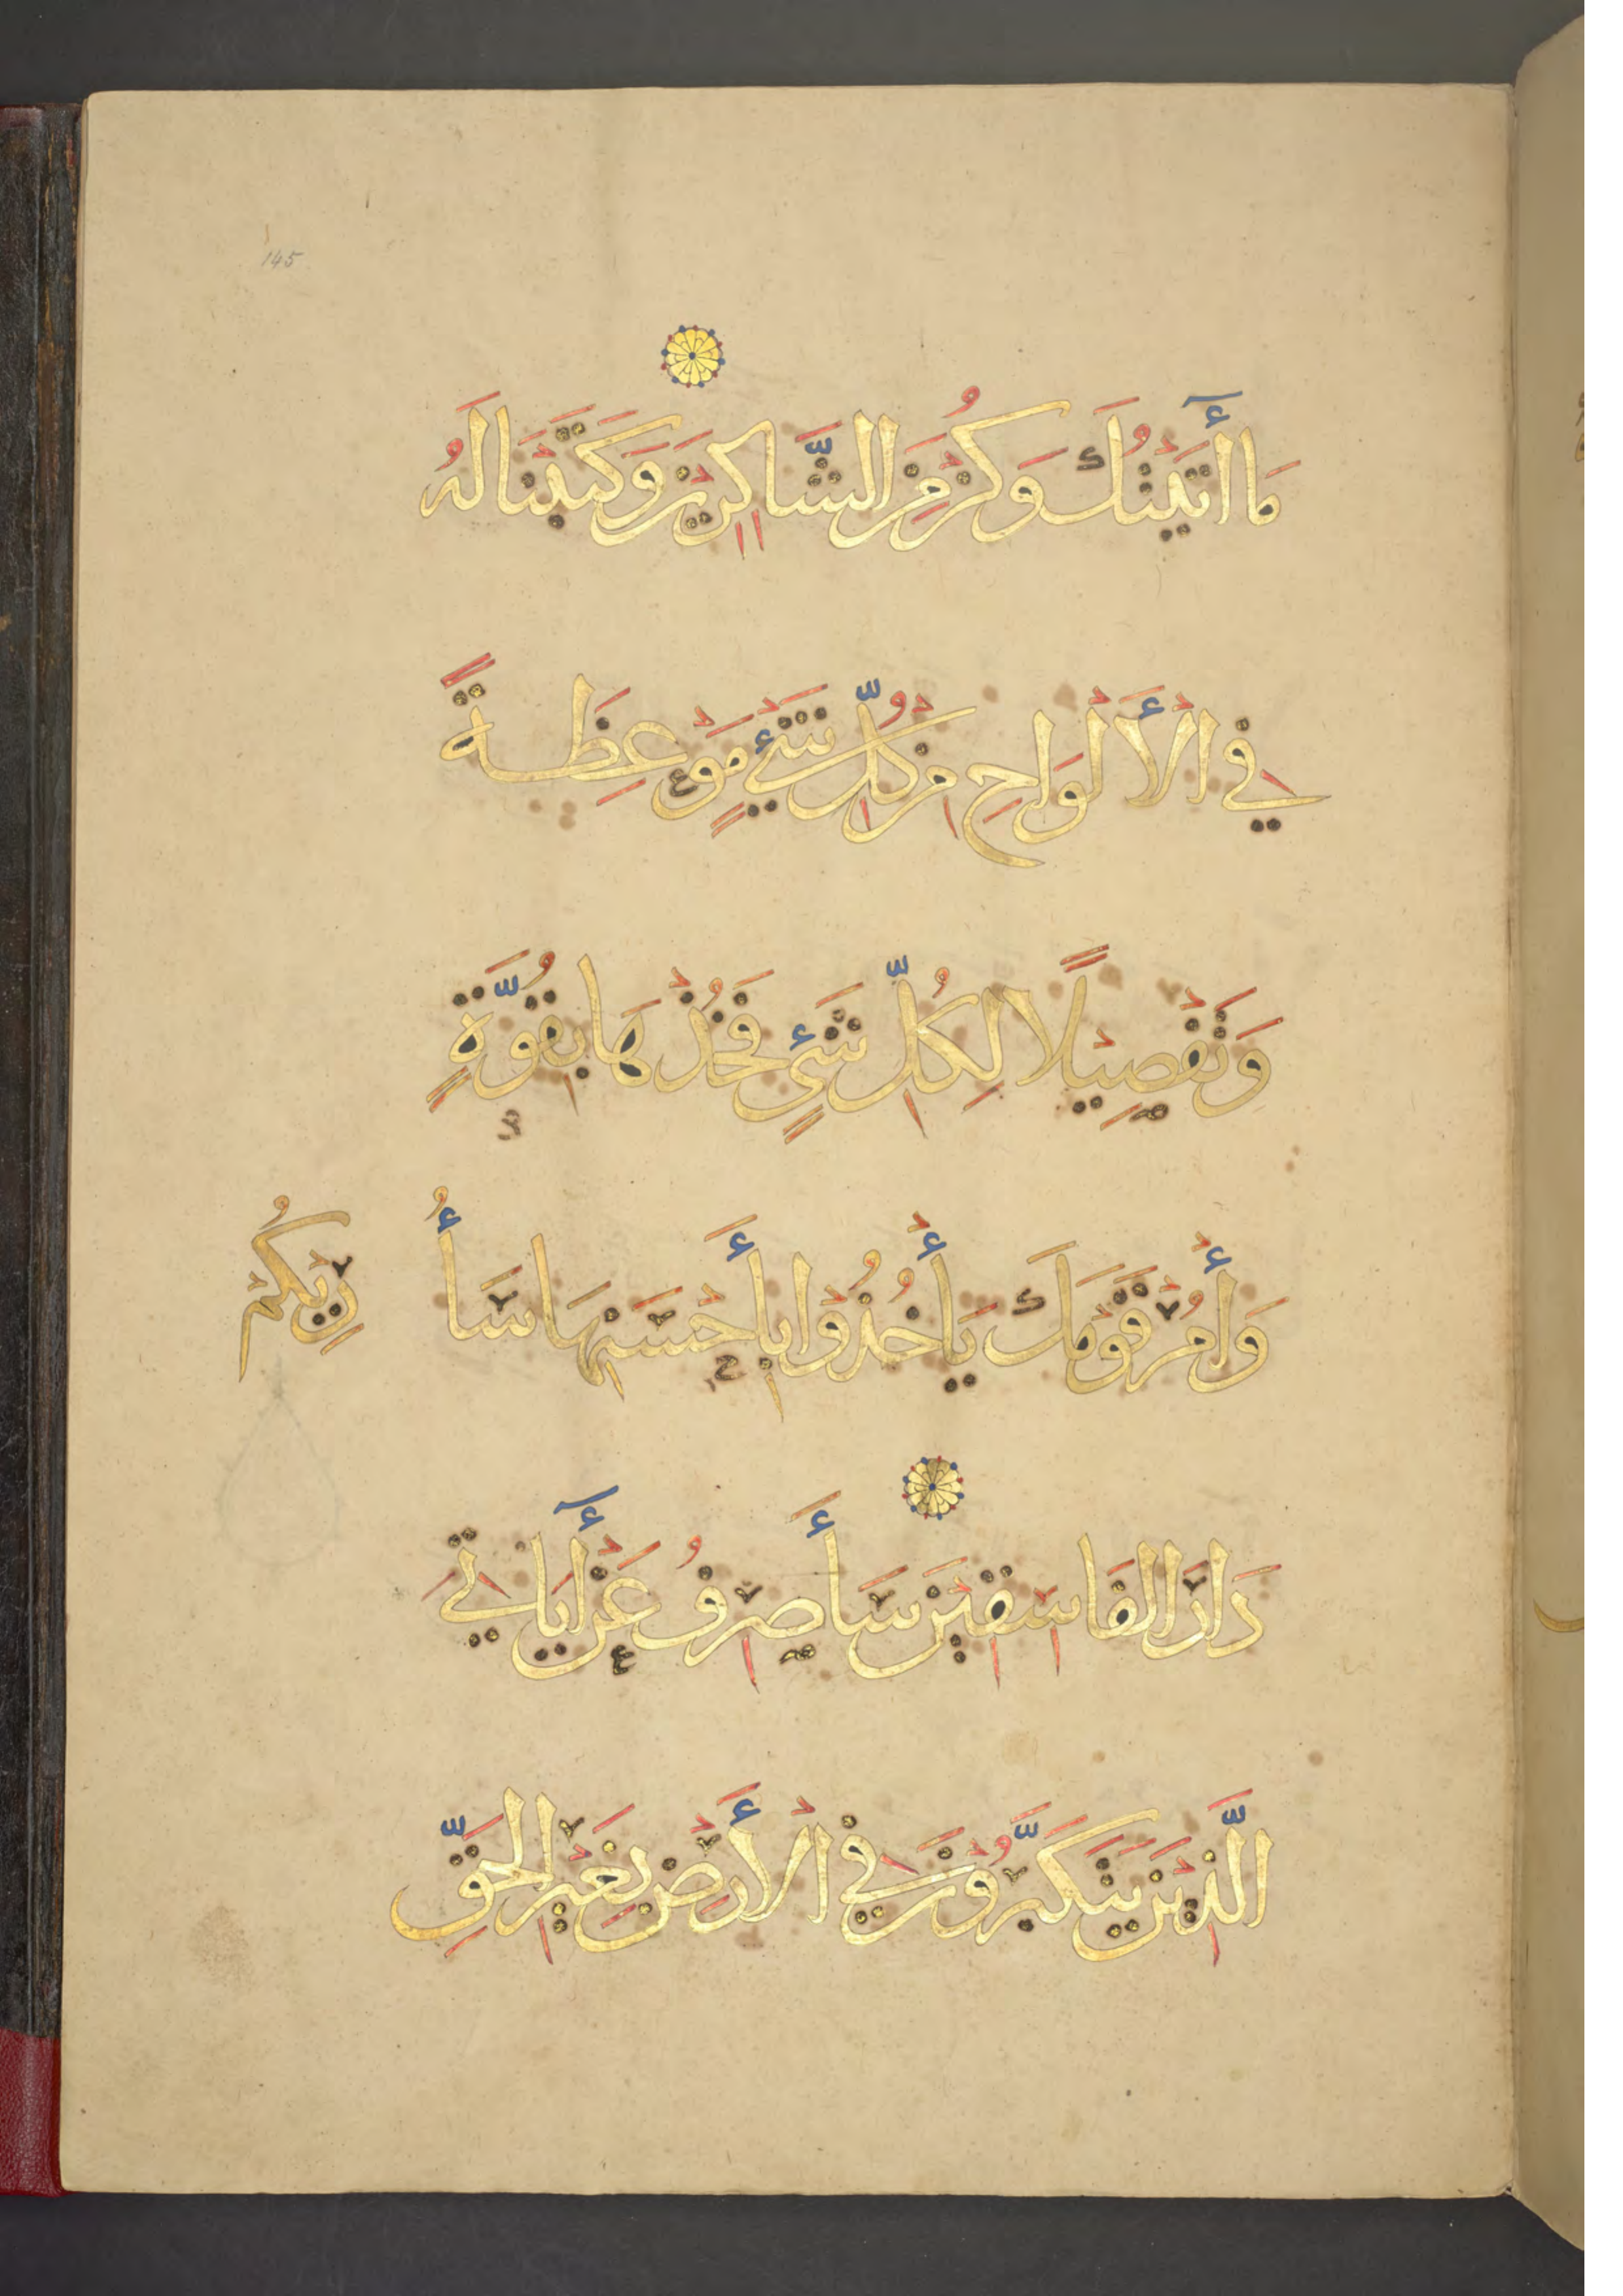 145
مَا أٓتَيْتُكَ وَكُنْ مِنَ الشَّاكِرِيْنَ وَكَتَبْنَا لَهُ
فِي الْأَلْوَاحِ مِنْ كُلِّ شَيْءٍ مَوْعِظَةً
وَتَفْصِيْلًا لِكُلِّ شَيْءٍ فَخُذْهَا بِقُوَّةٍ
وَأْمُرْ قَوْمَكَ يَأْخُذُوْا بِأَحْسَنِهَا سَأُ
رِيْكُمْ
دَارَ الْفَاسِقِيْنَ سَأَصْرِفُ عَنْ أٓيَاتِي
الَّذِيْنَ يَتَكَبَّرُوْنَ فِي الْأَرْضِ بِغَيْرِ الْحَقِّ